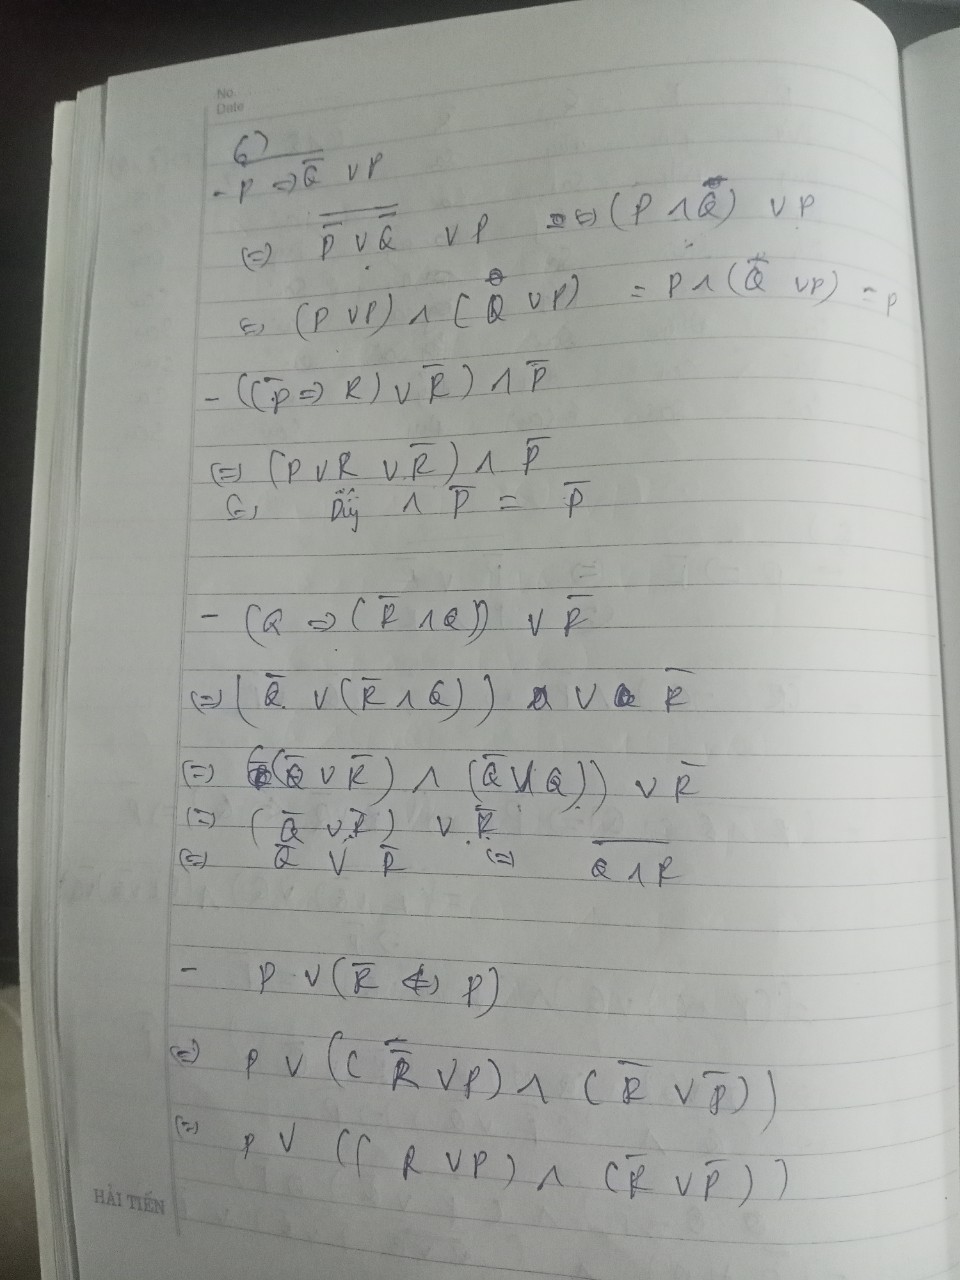 No.
Date
6)
- P ⇒ Q̅ ∨ P
⇔ \overline{\overline{P} ∨ \overline{\overline{Q}}} ∨ P ⇔ (P ∧ Q̅) ∨ P
⇔ (P ∨ P) ∧ (Q̅ ∨ P) = P ∧ (Q̅ ∨ P) = P
- ((P̅ ⇒ R) ∨ R̅) ∧ P̅
⇔ (P ∨ R ∨ R̅) ∧ P̅
⇔ ∧ P̅ = P̅
- (Q ⇒ (R̅ ∧ Q)) ∨ R̅
⇔ (Q̅ ∨ (R̅ ∧ Q)) ∨ R̅
⇔ ((Q̅ ∨ R̅) ∧ (Q̅ ∨ Q)) ∨ R̅
⇔ (Q̅ ∨ R̅) ∨ R̅
⇔ Q̅ ∨ R̅ ⇔ \overline{Q ∧ R}
- P ∨ (R̅ ⇔ P)
⇔ P ∨ ((\overline{\overline{R}} ∨ P) ∧ (R̅ ∨ P̅))
⇔ P ∨ ((R ∨ P) ∧ (R̅ ∨ P̅))
HẢI TIẾN